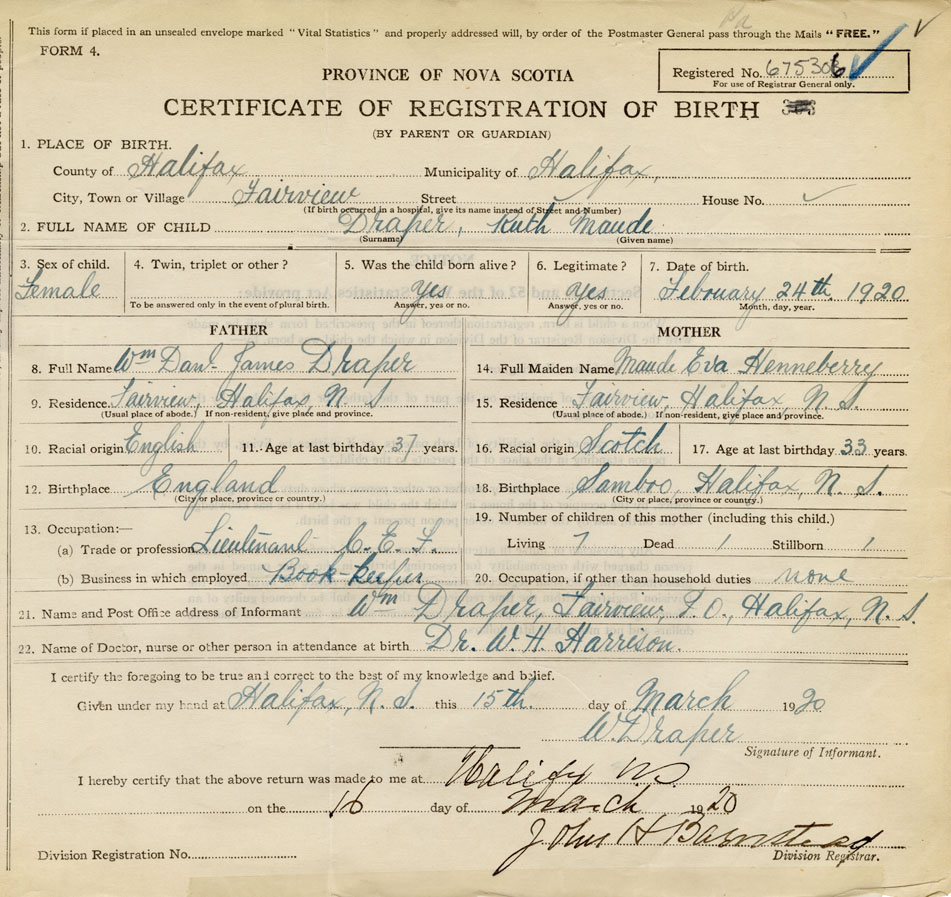 This form if placed in an unsealed envelope marked "Vital Statistics" and properly addressed will, by order of the Postmaster General pass through the Mails "FREE."
FORM 4.
Registered No. 675306
For use of Registrar General only.
PROVINCE OF NOVA SCOTIA
CERTIFICATE OF REGISTRATION OF BIRTH
(BY PARENT OR GUARDIAN)
1. PLACE OF BIRTH.
County of Halifax Municipality of Halifax,
City, Town or Village Fairview Street House No.
(If birth occurred in a hospital, give its name instead of Street and Number)
2. FULL NAME OF CHILD Draper, Ruth Maude
(Surname) (Given name)
3. Sex of child. 4. Twin, triplet or other? 5. Was the child born alive? 6. Legitimate? 7. Date of birth.
Female Yes Yes February 24th. 1920
To be answered only in the event of plural birth. Answer, yes or no. Answer, yes or no. Month, day, year.
FATHER MOTHER
8. Full Name Wm Danl James Draper 14. Full Maiden Name Maude Eva Henneberry
9. Residence. Fairview, Halifax, N. S 15. Residence Fairview, Halifax, N. S.
(Usual place of abode.) If non-resident, give place and province. (Usual place of abode.) If non-resident, give place and province.
10. Racial origin English 11. Age at last birthday 37 years. 16. Racial origin Scotch 17. Age at last birthday 33 years.
12. Birthplace England 18. Birthplace Sambro, Halifax, N. S.
(City or place, province or country.) (City or place, province or country.)
13. Occupation:— 19. Number of children of this mother (including this child.)
(a) Trade or profession Lieutenant C. E. F. Living 7 Dead 1 Stillborn 1
(b) Business in which employed Book-keeper 20. Occupation, if other than household duties none
21. Name and Post Office address of Informant Wm Draper, Fairview, P. O., Halifax, N. S.
22. Name of Doctor, nurse or other person in attendance at birth Dr. W. H. Harrison.
I certify the foregoing to be true and correct to the best of my knowledge and belief.
Given under my hand at Halifax, N. S. this 15th. day of March 1920
W. Draper
Signature of Informant.
I hereby certify that the above return was made to me at Halifx NS
on the 16 day of March 1920
John H Barnstead
Division Registration No. Division Registrar.